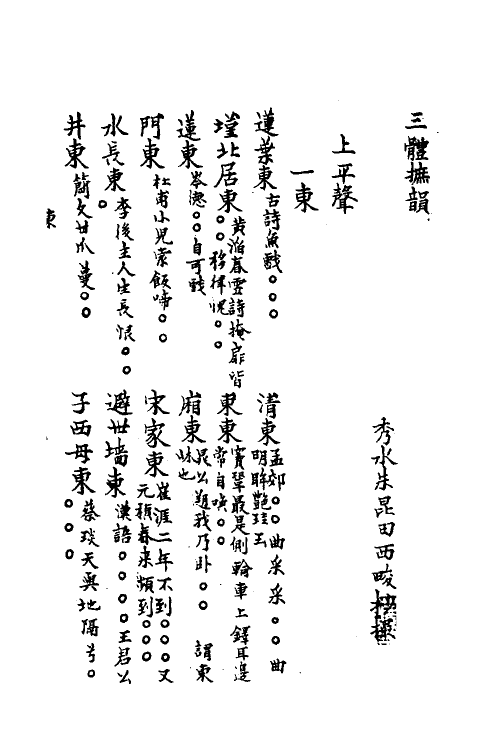 三體摭韻
秀水朱昆田西畯
上平聲
一東
蓮葉東古詩魚戲。。。
清東孟郊。。曲采采。。曲
明眸艷珪玉
墐北居東黃滔春雪詩掩扉皆
。。移律悅。。
東東竇鞏最是側輪車上鐸耳邊
常自喚。。
蓮東岑德。。自可戲
廂東昆公題我乃卧。。謂東
牀也
門東杜甫小兒索飯啼。。
宋家東崔涯二年不到。。。又
元稹春來頻到。。。
水長東李後主人生長恨。。
避世墻東漢語。。。。王君公
井東簡文甘爪蔓。。
子西母東蔡琰天與地隔兮。
。。。
東